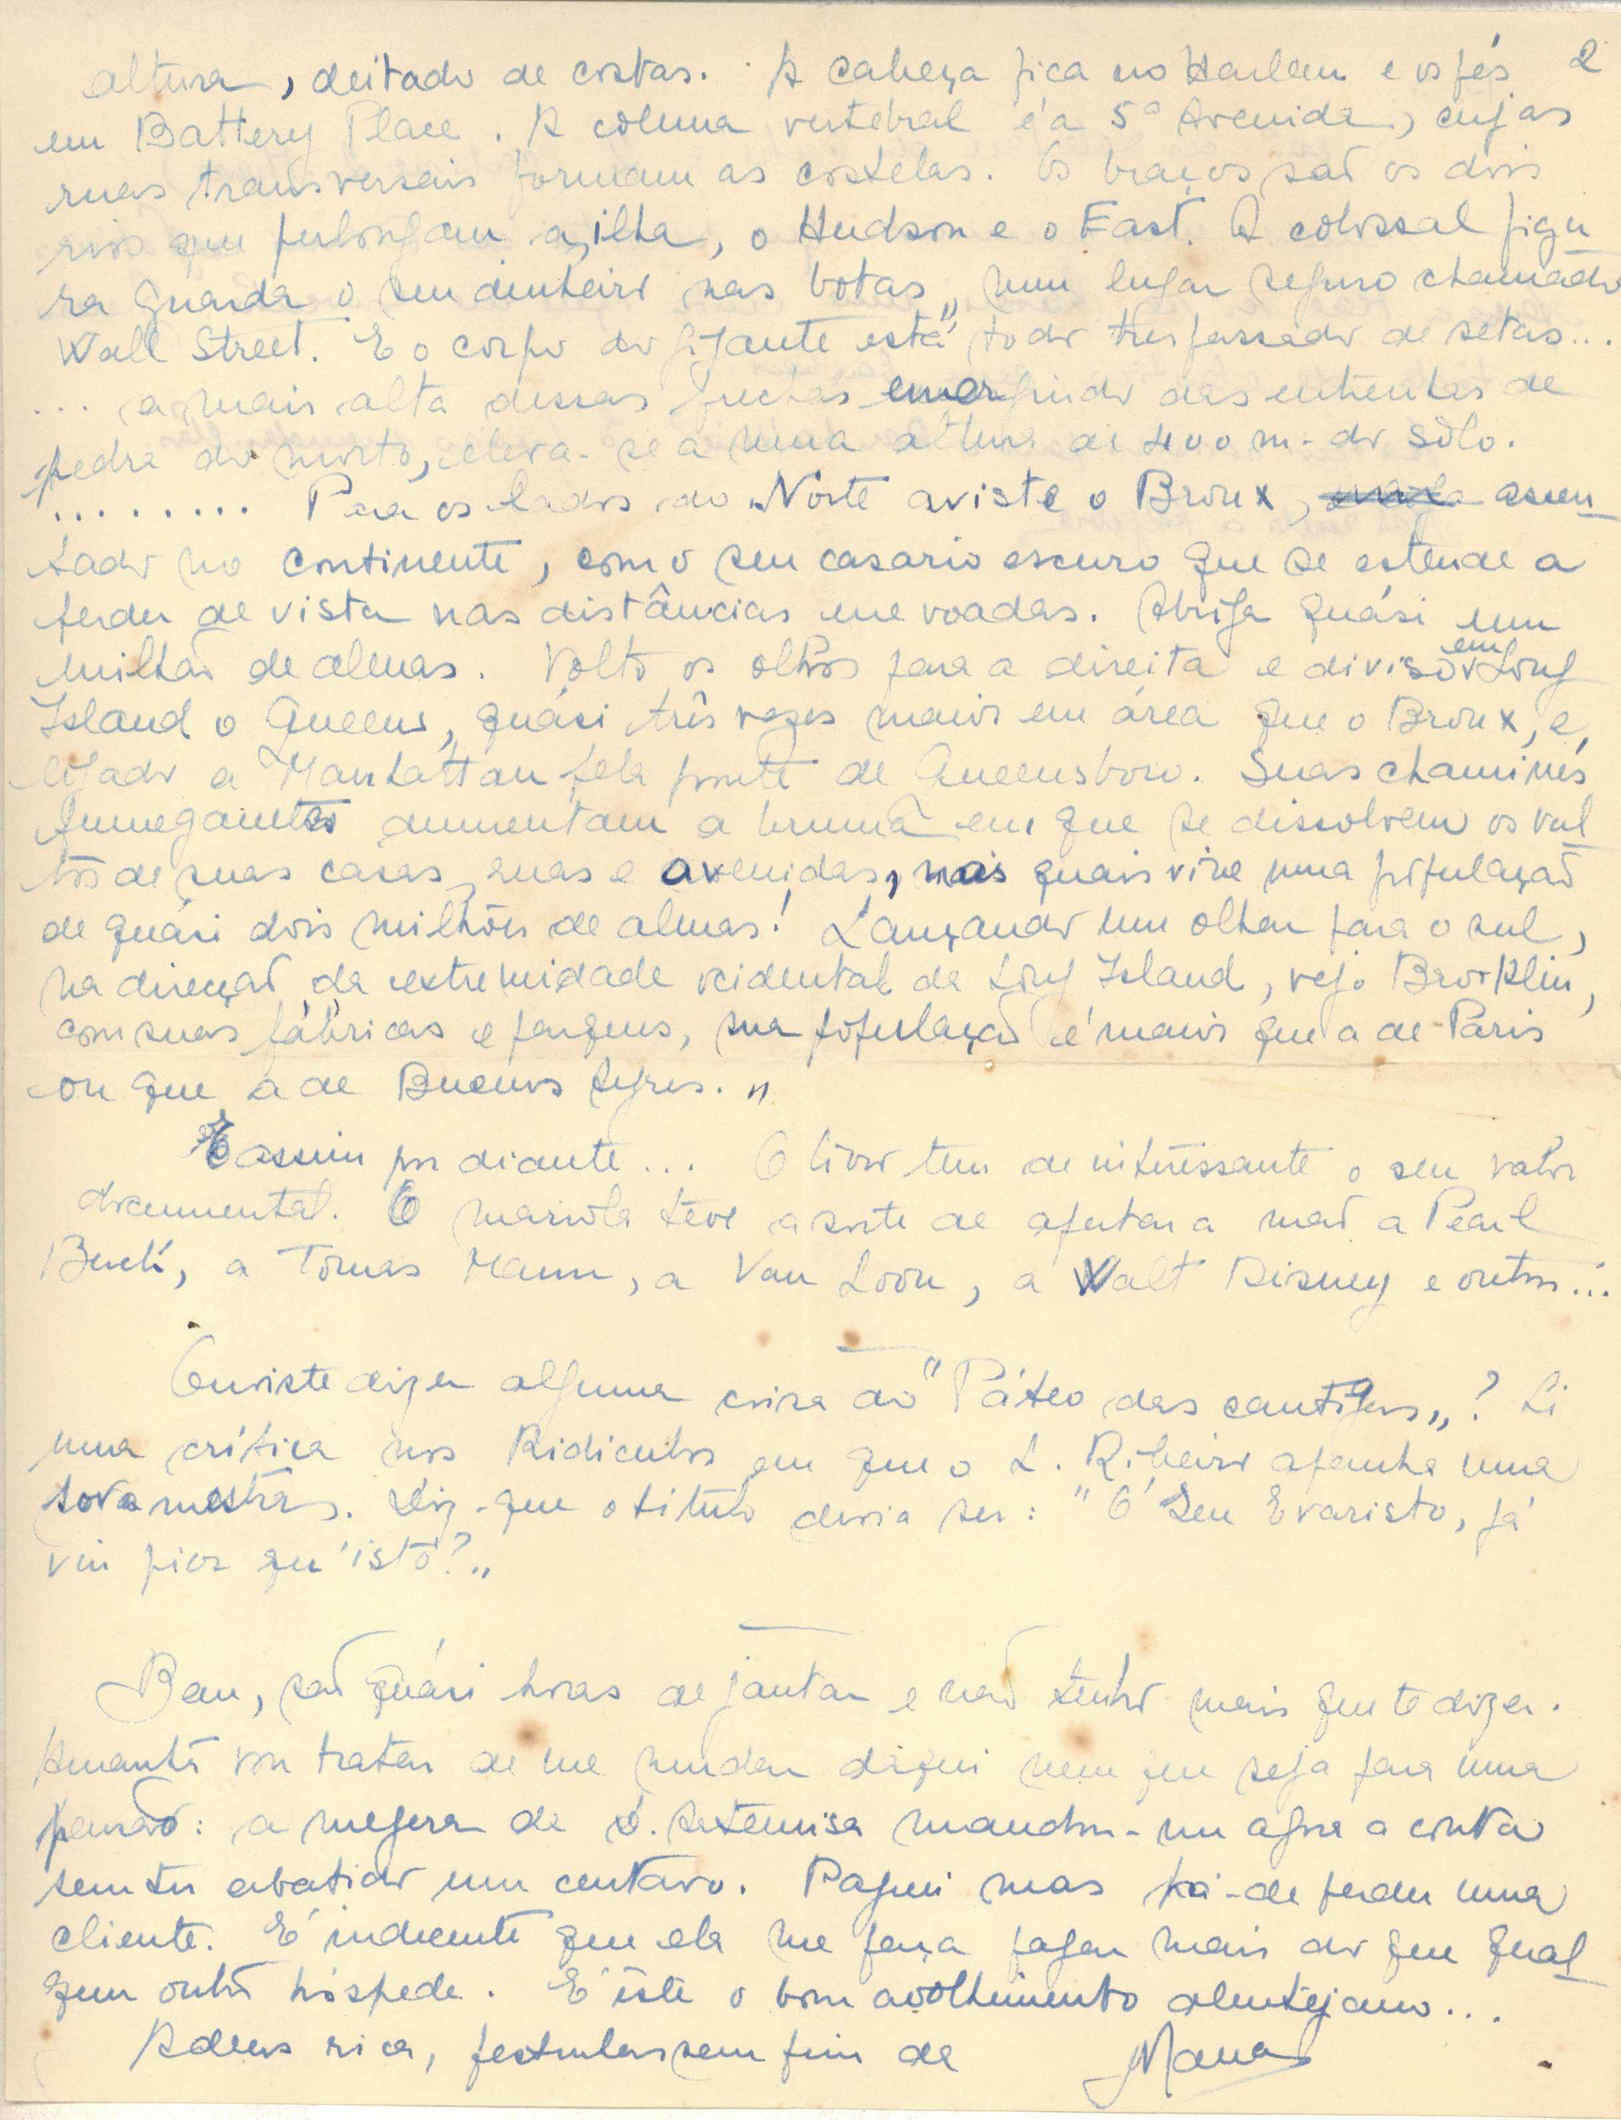 2
altura, deitado de costas. A cabeça fica no Harlem e os pés
em Battery Place. A coluna vertebral é a 5ª Avenida, cujas
ruas transversais formam as costelas. Os braços são os dois
rios que prolongam a ilha, o Hudson e o East. A colossal figu
ra guarda o seu dinheiro nas botas, num lugar seguro chamado
Wall Street. E o corpo do gigante está todo trespassado de setas...
... a mais alta dessas flechas emergindo das entranhas de
pedra do morto, eleva-se a uma altura de 400 m. do solo.
......... Para os lados do Norte aviste o Bronx, assen
tado no continente, com o seu casario escuro que se estende a
perder de vista nas distâncias enevoadas. Abriga quási um
milhão de almas. Volto os olhos para a direita e diviso em Long
Island o Queens, quási três vezes maior em área que o Bronx, e
ligado a Manhattan pela ponte de Queensboro. Suas chaminés
fumegantes aumentam a bruma em que se dissolvem os vul
tos de suas casas, ruas e avenidas, nas quais vive uma população
de quási dois milhões de almas! Lançando um olhar para o sul,
na direcção da extremidade ocidental de Long Island, vejo Brooklin,
com suas fábricas e parques, sua população é maior que a de Paris
ou que a de Buenos Ayres."
E assim por diante... O livro tem de interessante o seu valor
documental. O mariola teve a sorte de apertar a mão a Pearl
Buck, a Tomas Mann, a Van Loon, a Walt Disney e outros...
Ouviste dizer alguma coisa do "Páteo das cantigas"? Li
uma crítica nos Ridículos em que o L. Ribeiro apanha uma
sova mestra. Diz que o título devia ser: "Ó Seu Evaristo, já
viu pior qu'isto?"
Bem, são quási horas de jantar e não tenho mais que te dizer.
Amanhã vou tratar de me mudar daqui nem que seja para uma
pensão: a megera da D. Artemisa mandou-me agora a conta
sem ter abatido um centavo. Paguei mas há-de perder uma
cliente. É indecente que ela me faça pagar mais do que qual
quer outro hóspede. É êste o bom acolhimento alentejano...
Adeus rica, festinhas sem fim da